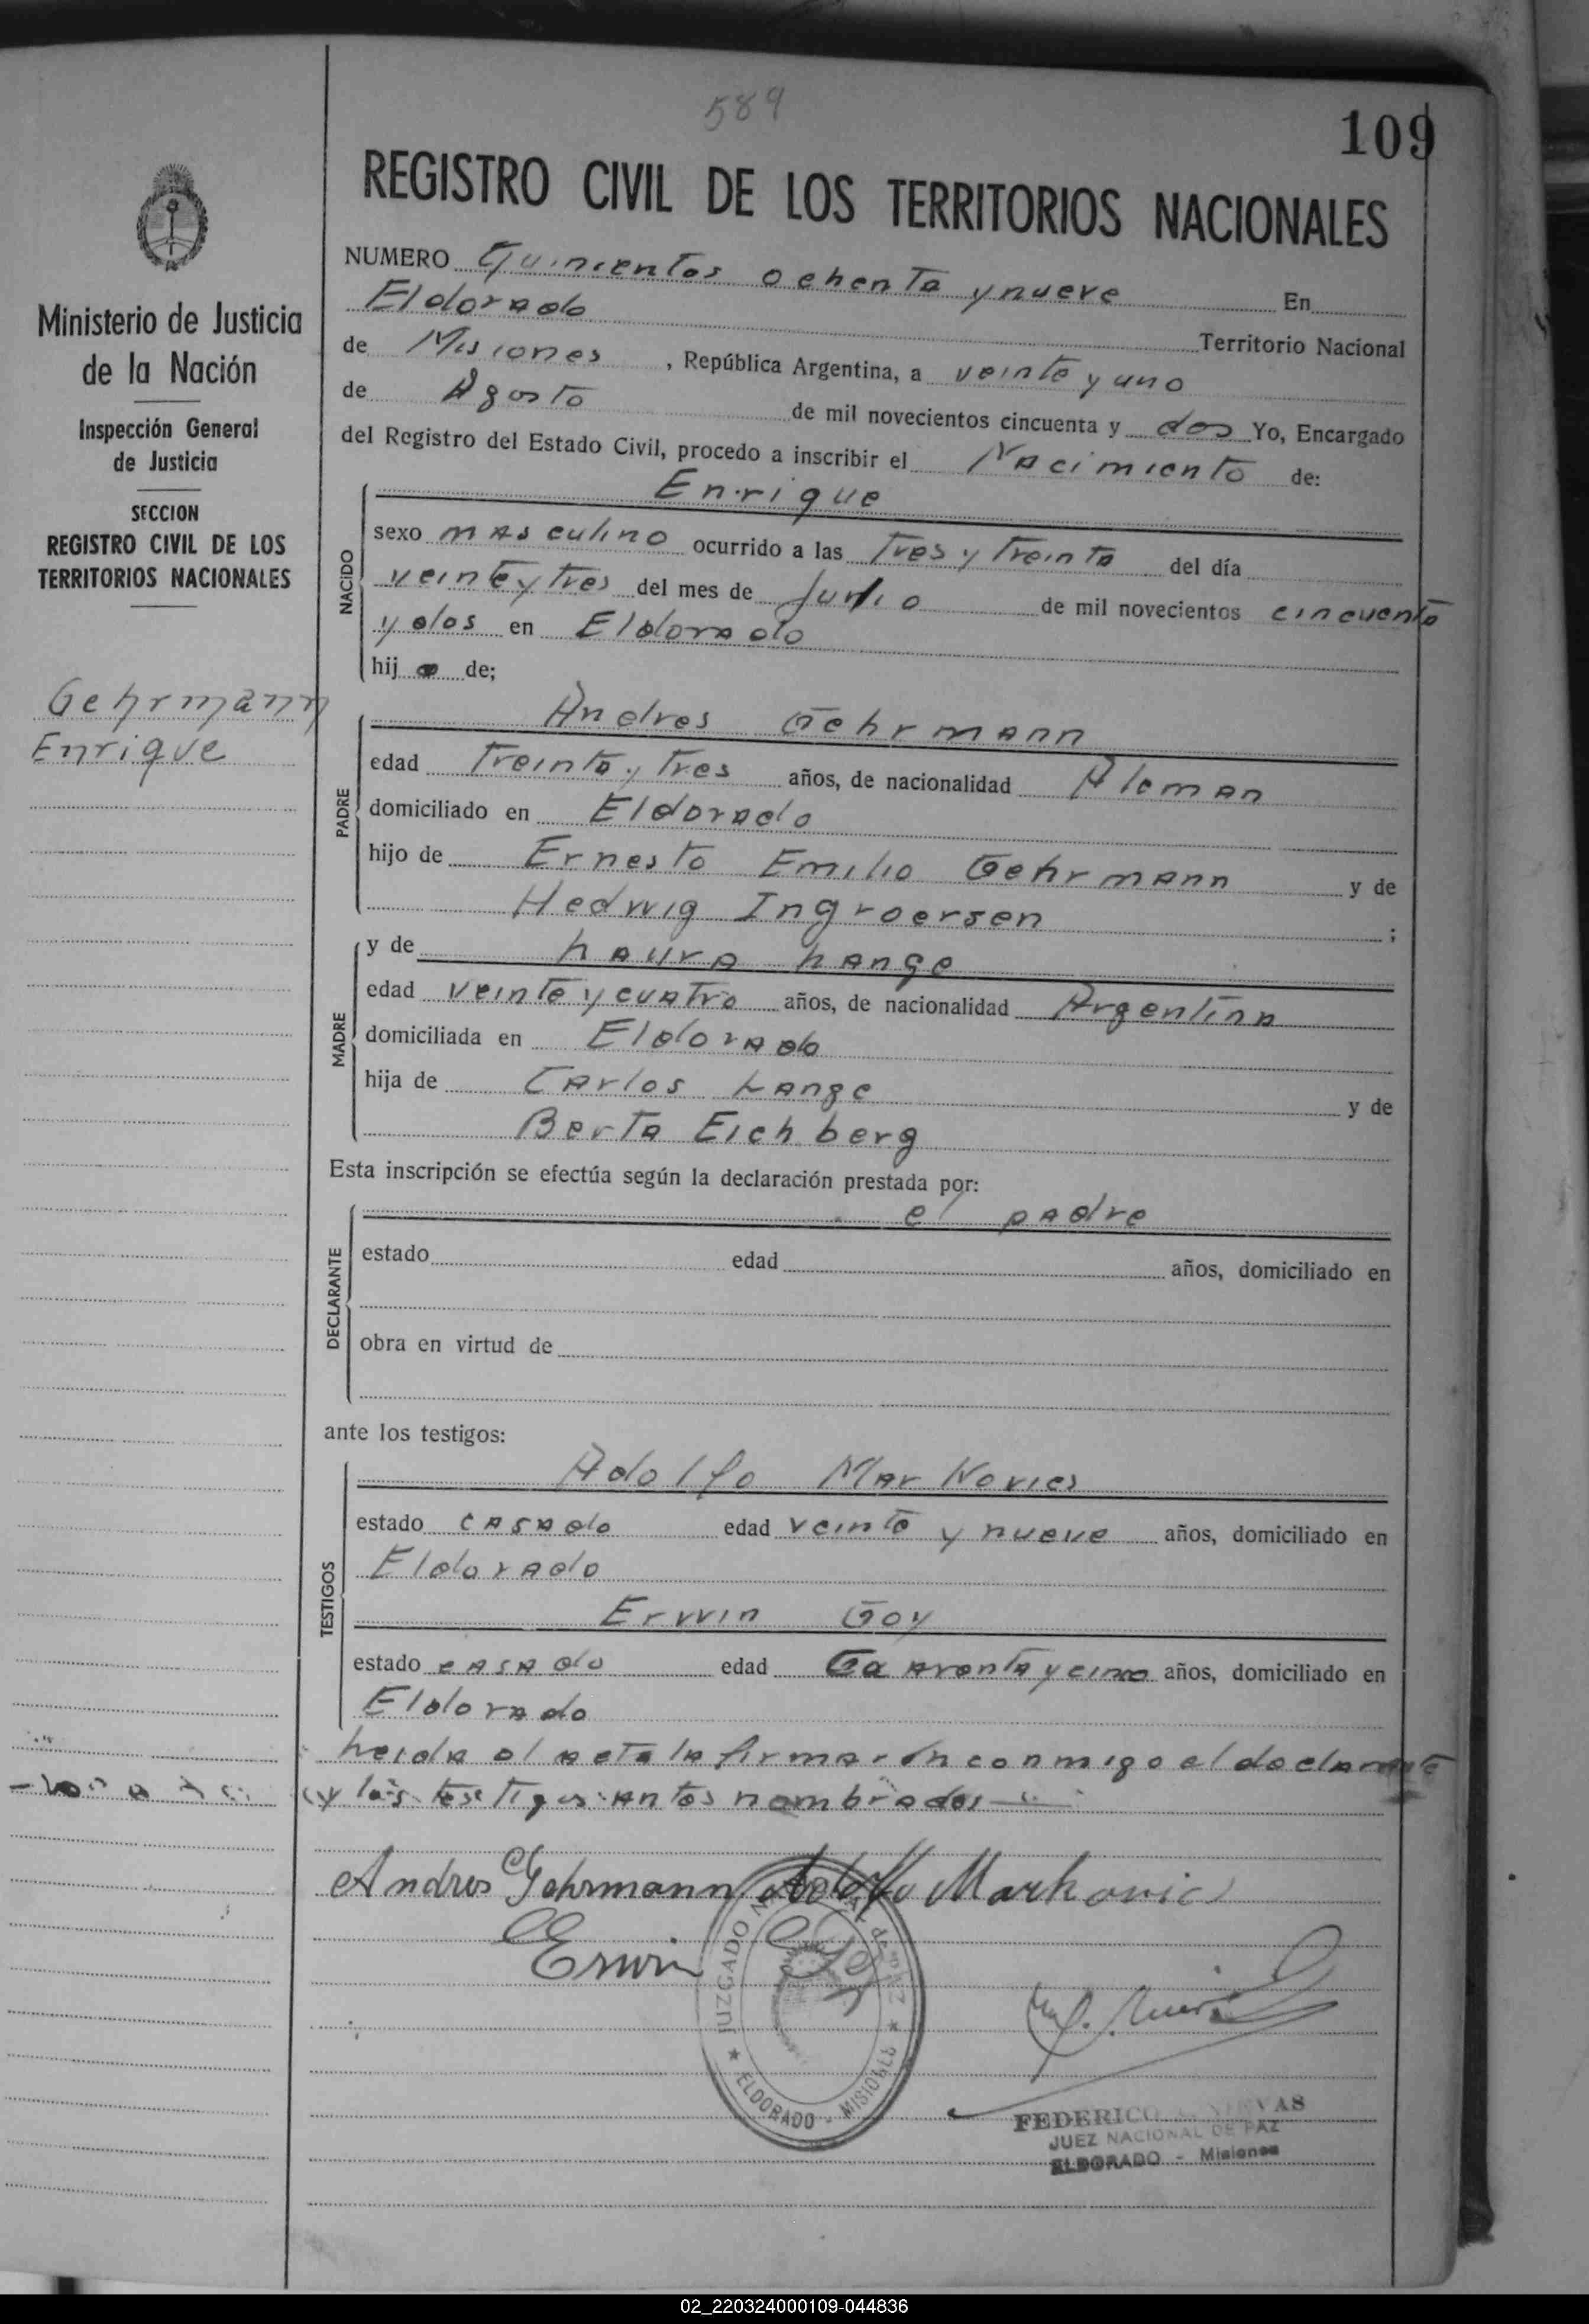 589
109
REGISTRO CIVIL DE LOS TERRITORIOS NACIONALES
Ministerio de Justicia
de la Nación
Inspección General
de Justicia
SECCION
REGISTRO CIVIL DE LOS
TERRITORIOS NACIONALES
Gehrmann
Enrique
NUMERO Quinientos ochenta y nueve En
Eldorado Territorio Nacional
de Misiones, República Argentina, a veinte y uno
de Agosto de mil novecientos cincuenta y dos Yo, Encargado
del Registro del Estado Civil, procedo a inscribir el Nacimiento de:
NACIDO
Enrique
sexo masculino ocurrido a las tres y treinta del día
veinte y tres del mes de de mil novecientos cincuenta
y dos en Eldorado
hijo de;
PADRE
Andres Gehrmann
edad treinta y tres años, de nacionalidad Aleman
domiciliado en Eldorado
hijo de Ernesto Emilio Gehrmann y de
Hedwig Ingroersen ;
MADRE
y de Laura Lange
edad veinte y cuatro años, de nacionalidad Argentina
domiciliada en Eldorado
hija de Carlos Lange y de
Berta Eichberg
Esta inscripción se efectúa según la declaración prestada por:
DECLARANTE
el padre
estado edad años, domiciliado en
obra en virtud de
ante los testigos:
TESTIGOS
Adolfo Markovics
estado casado edad veinte y nueve años, domiciliado en
Eldorado
Erwin Goy
estado casado edad años, domiciliado en
Eldorado
Leida el acta la firmarón conmigo el declarante
y los testigos antes nombrados
Andres Gehrmann Adolfo Markovics
Erwin Goy
JUZGADO NACIONAL de PAZ
ELDORADO - MISIONES
FEDERICO
JUEZ NACIONAL DE PAZ
ELDORADO - Misiones
02_220324000109-044836